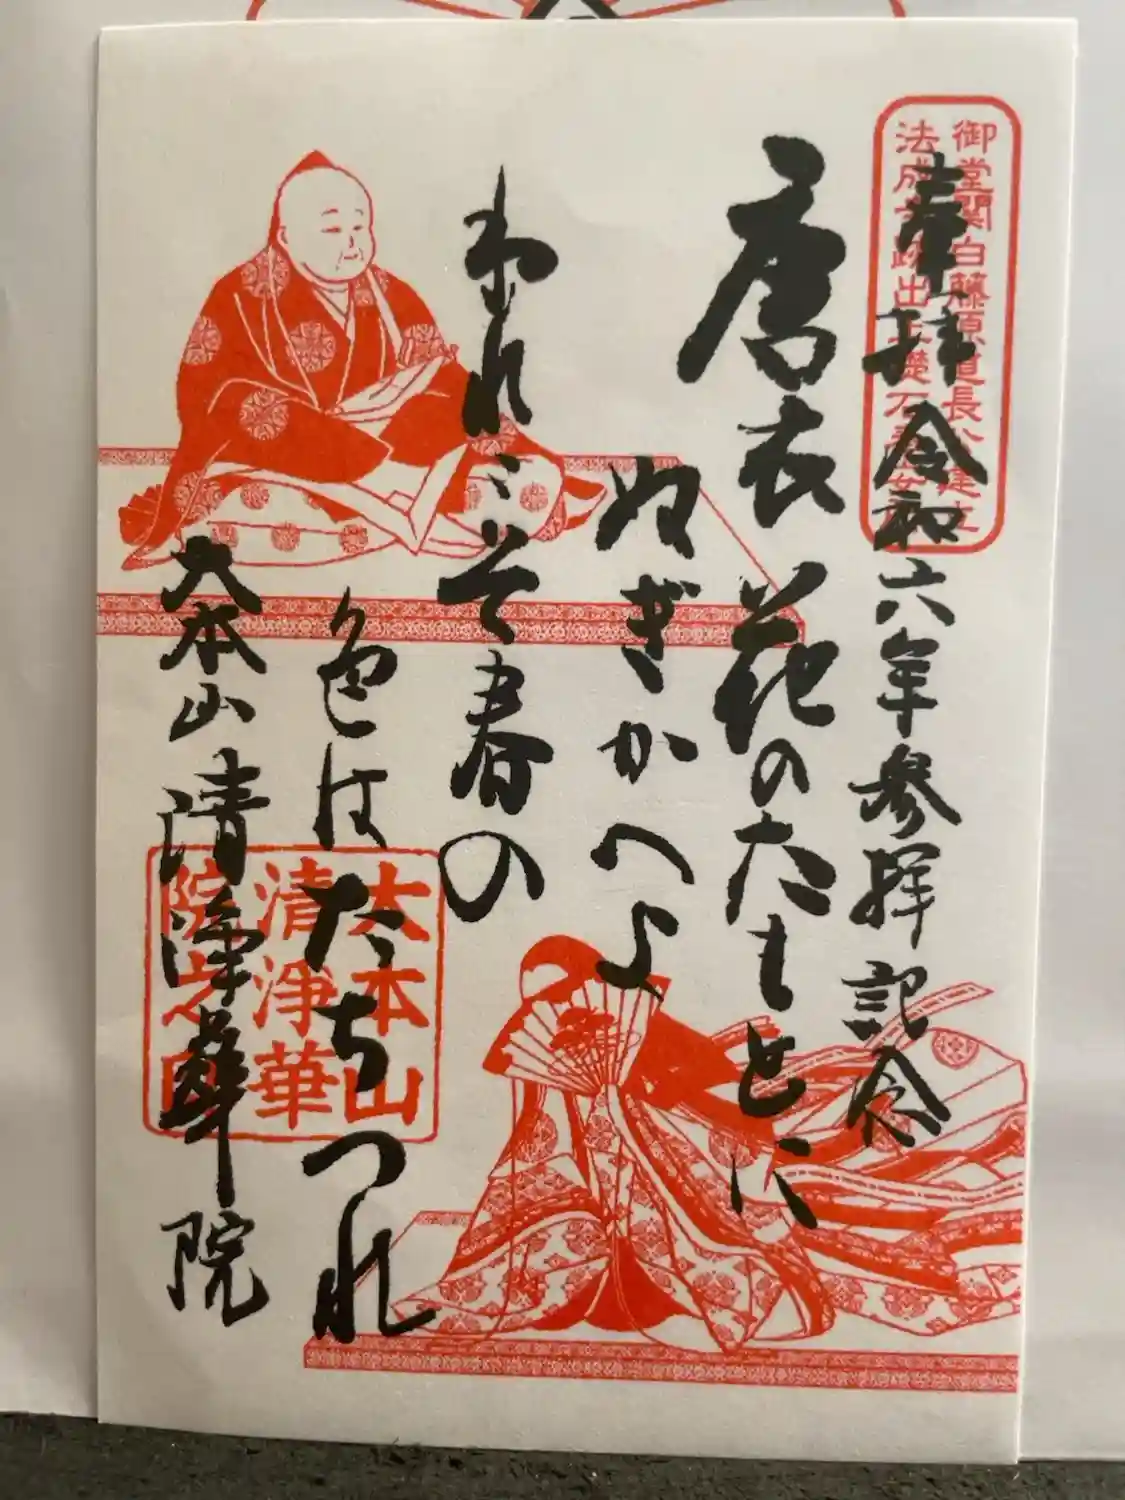 奉拝 令和六年参拝記念
唐衣花のたもとに
ぬぎかへよ
われこそ春の
色はたちつれ
大本山清浄華院
御堂関白藤原道長公建立
法成寺跡出土礎石
大本山
清淨華
院之印